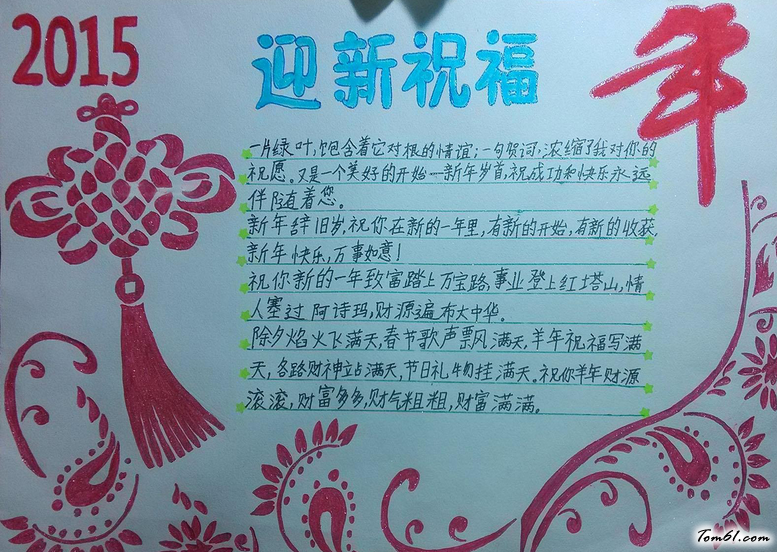 2015
迎新祝福
年
一片绿叶,饱含着它对根的情谊;一句贺词,浓缩了我对你的
祝愿。又是一个美好的开始—新年岁首,祝成功和快乐永远
伴随着您。
新年辞旧岁,祝你在新的一年里,有新的开始,有新的收获,
新年快乐,万事如意!
祝你新的一年致富踏上万宝路,事业登上红塔山,情
人塞过阿诗玛,财源遍布大中华。
除夕焰火飞满天,春节歌声飘风满天,羊年祝福写满
天,各路财神站满天,节日礼物挂满天。祝你羊年财源
滚滚,财富多多,财气粗粗,财富满满。
Tom61.com